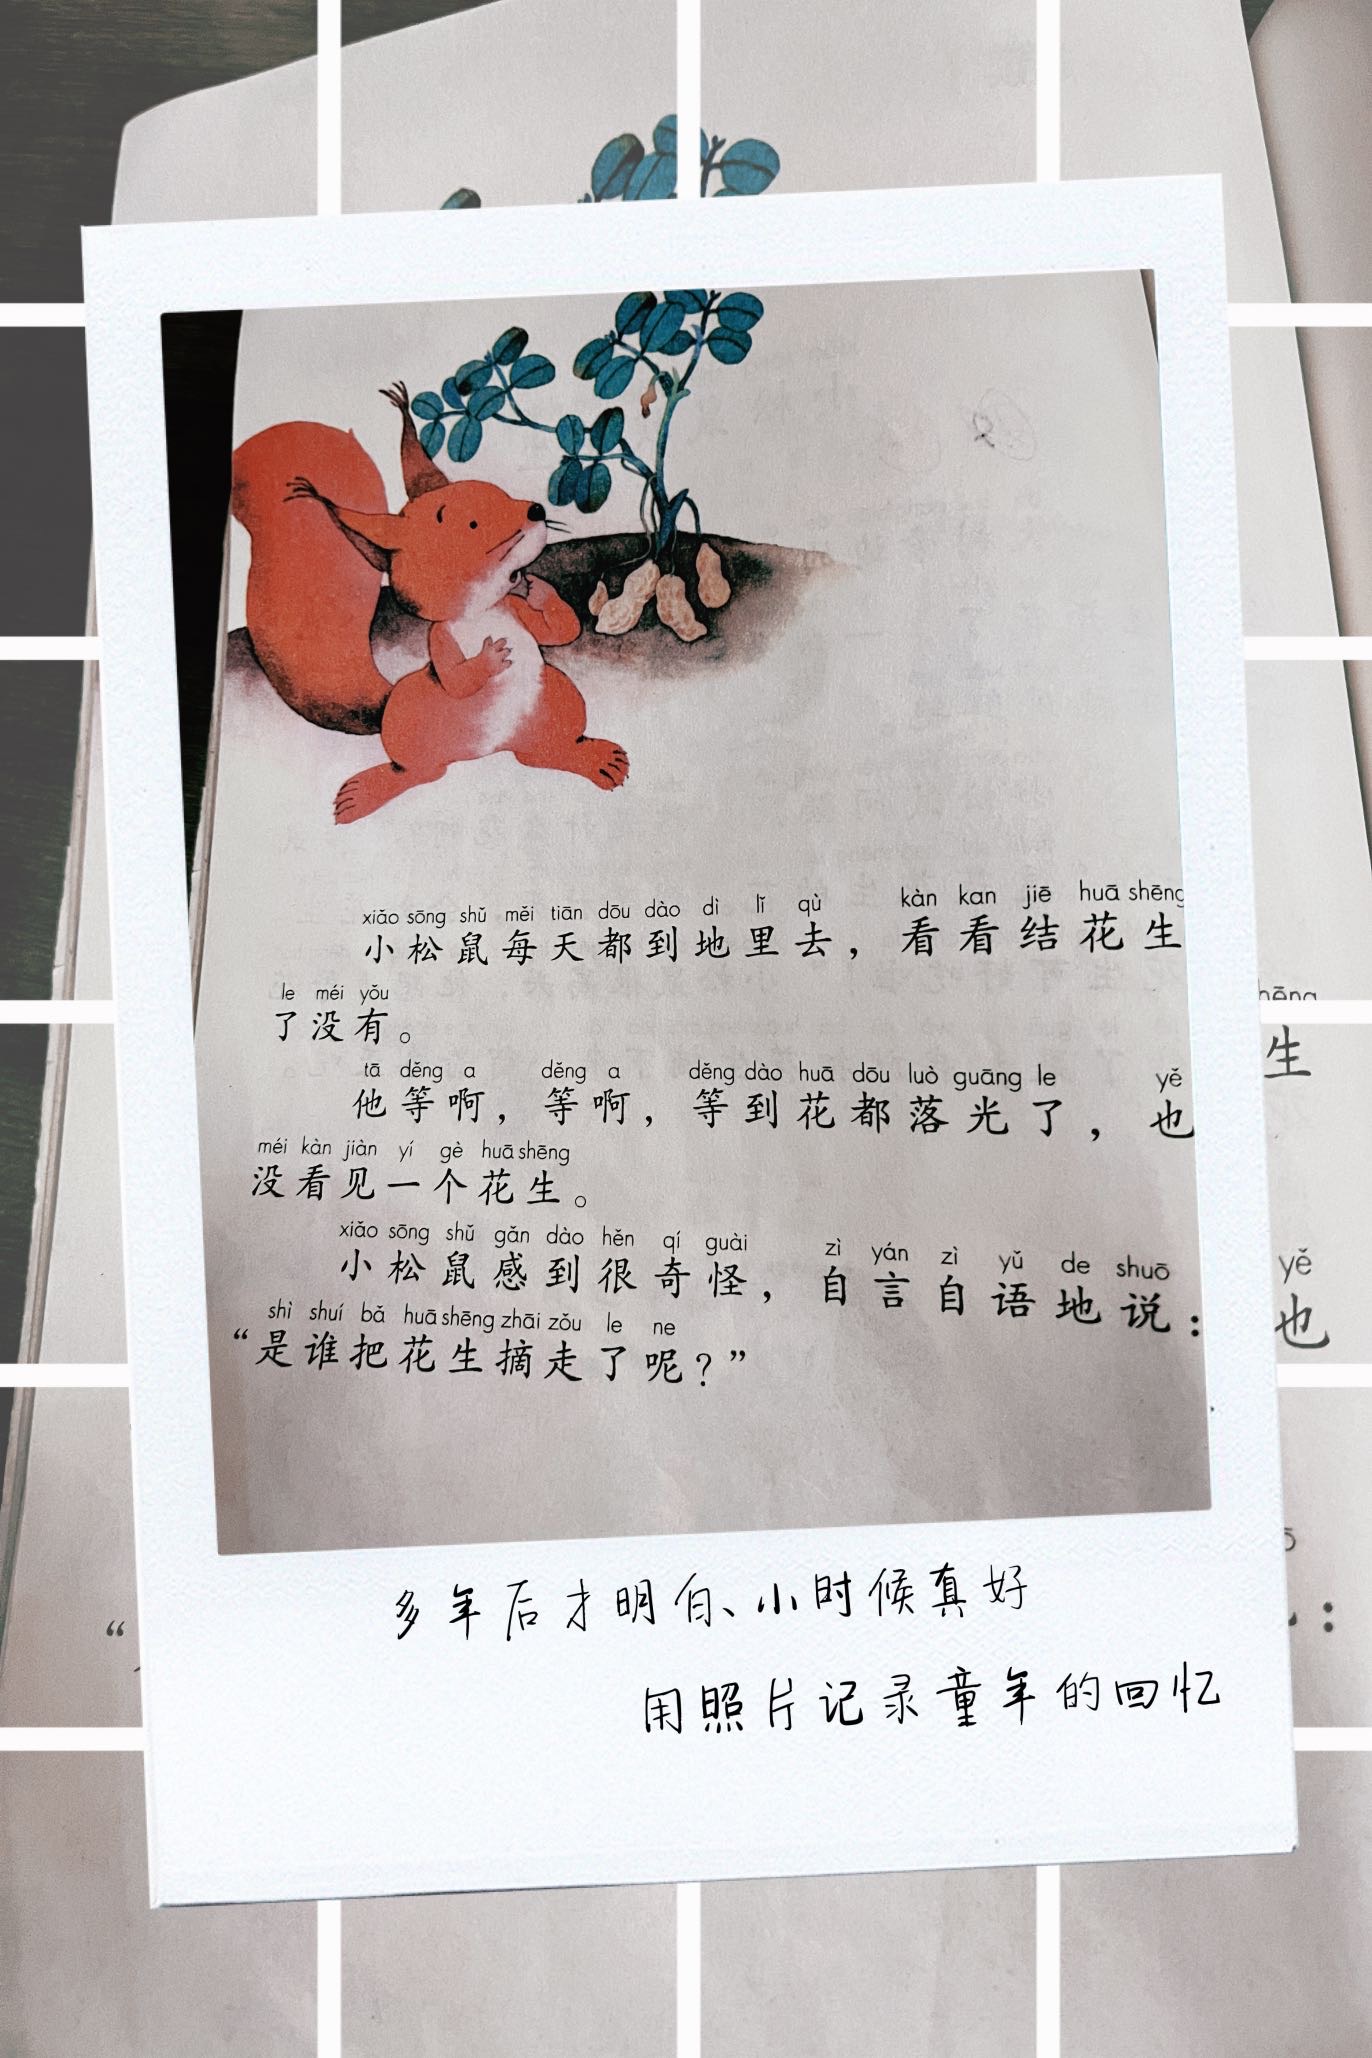 xiǎo sōng shǔ měi tiān dōu dào dì lǐ qù kàn kan jiē huā shēng
小松鼠每天都到地里去，看看结花生
le méi yǒu
了没有。
tā děng a děng a děng dào huā dōu luò guāng le yě
他等啊，等啊，等到花都落光了，也
méi kàn jiàn yí gè huā shēng
没看见一个花生。
xiǎo sōng shǔ gǎn dào hěn qí guài zì yán zì yǔ de shuō
小松鼠感到很奇怪，自言自语地说：
shì shuí bǎ huā shēng zhāi zǒu le ne
“是谁把花生摘走了呢？”
多年后才明白、小时候真好
用照片记录童年的回忆
生
yě
也